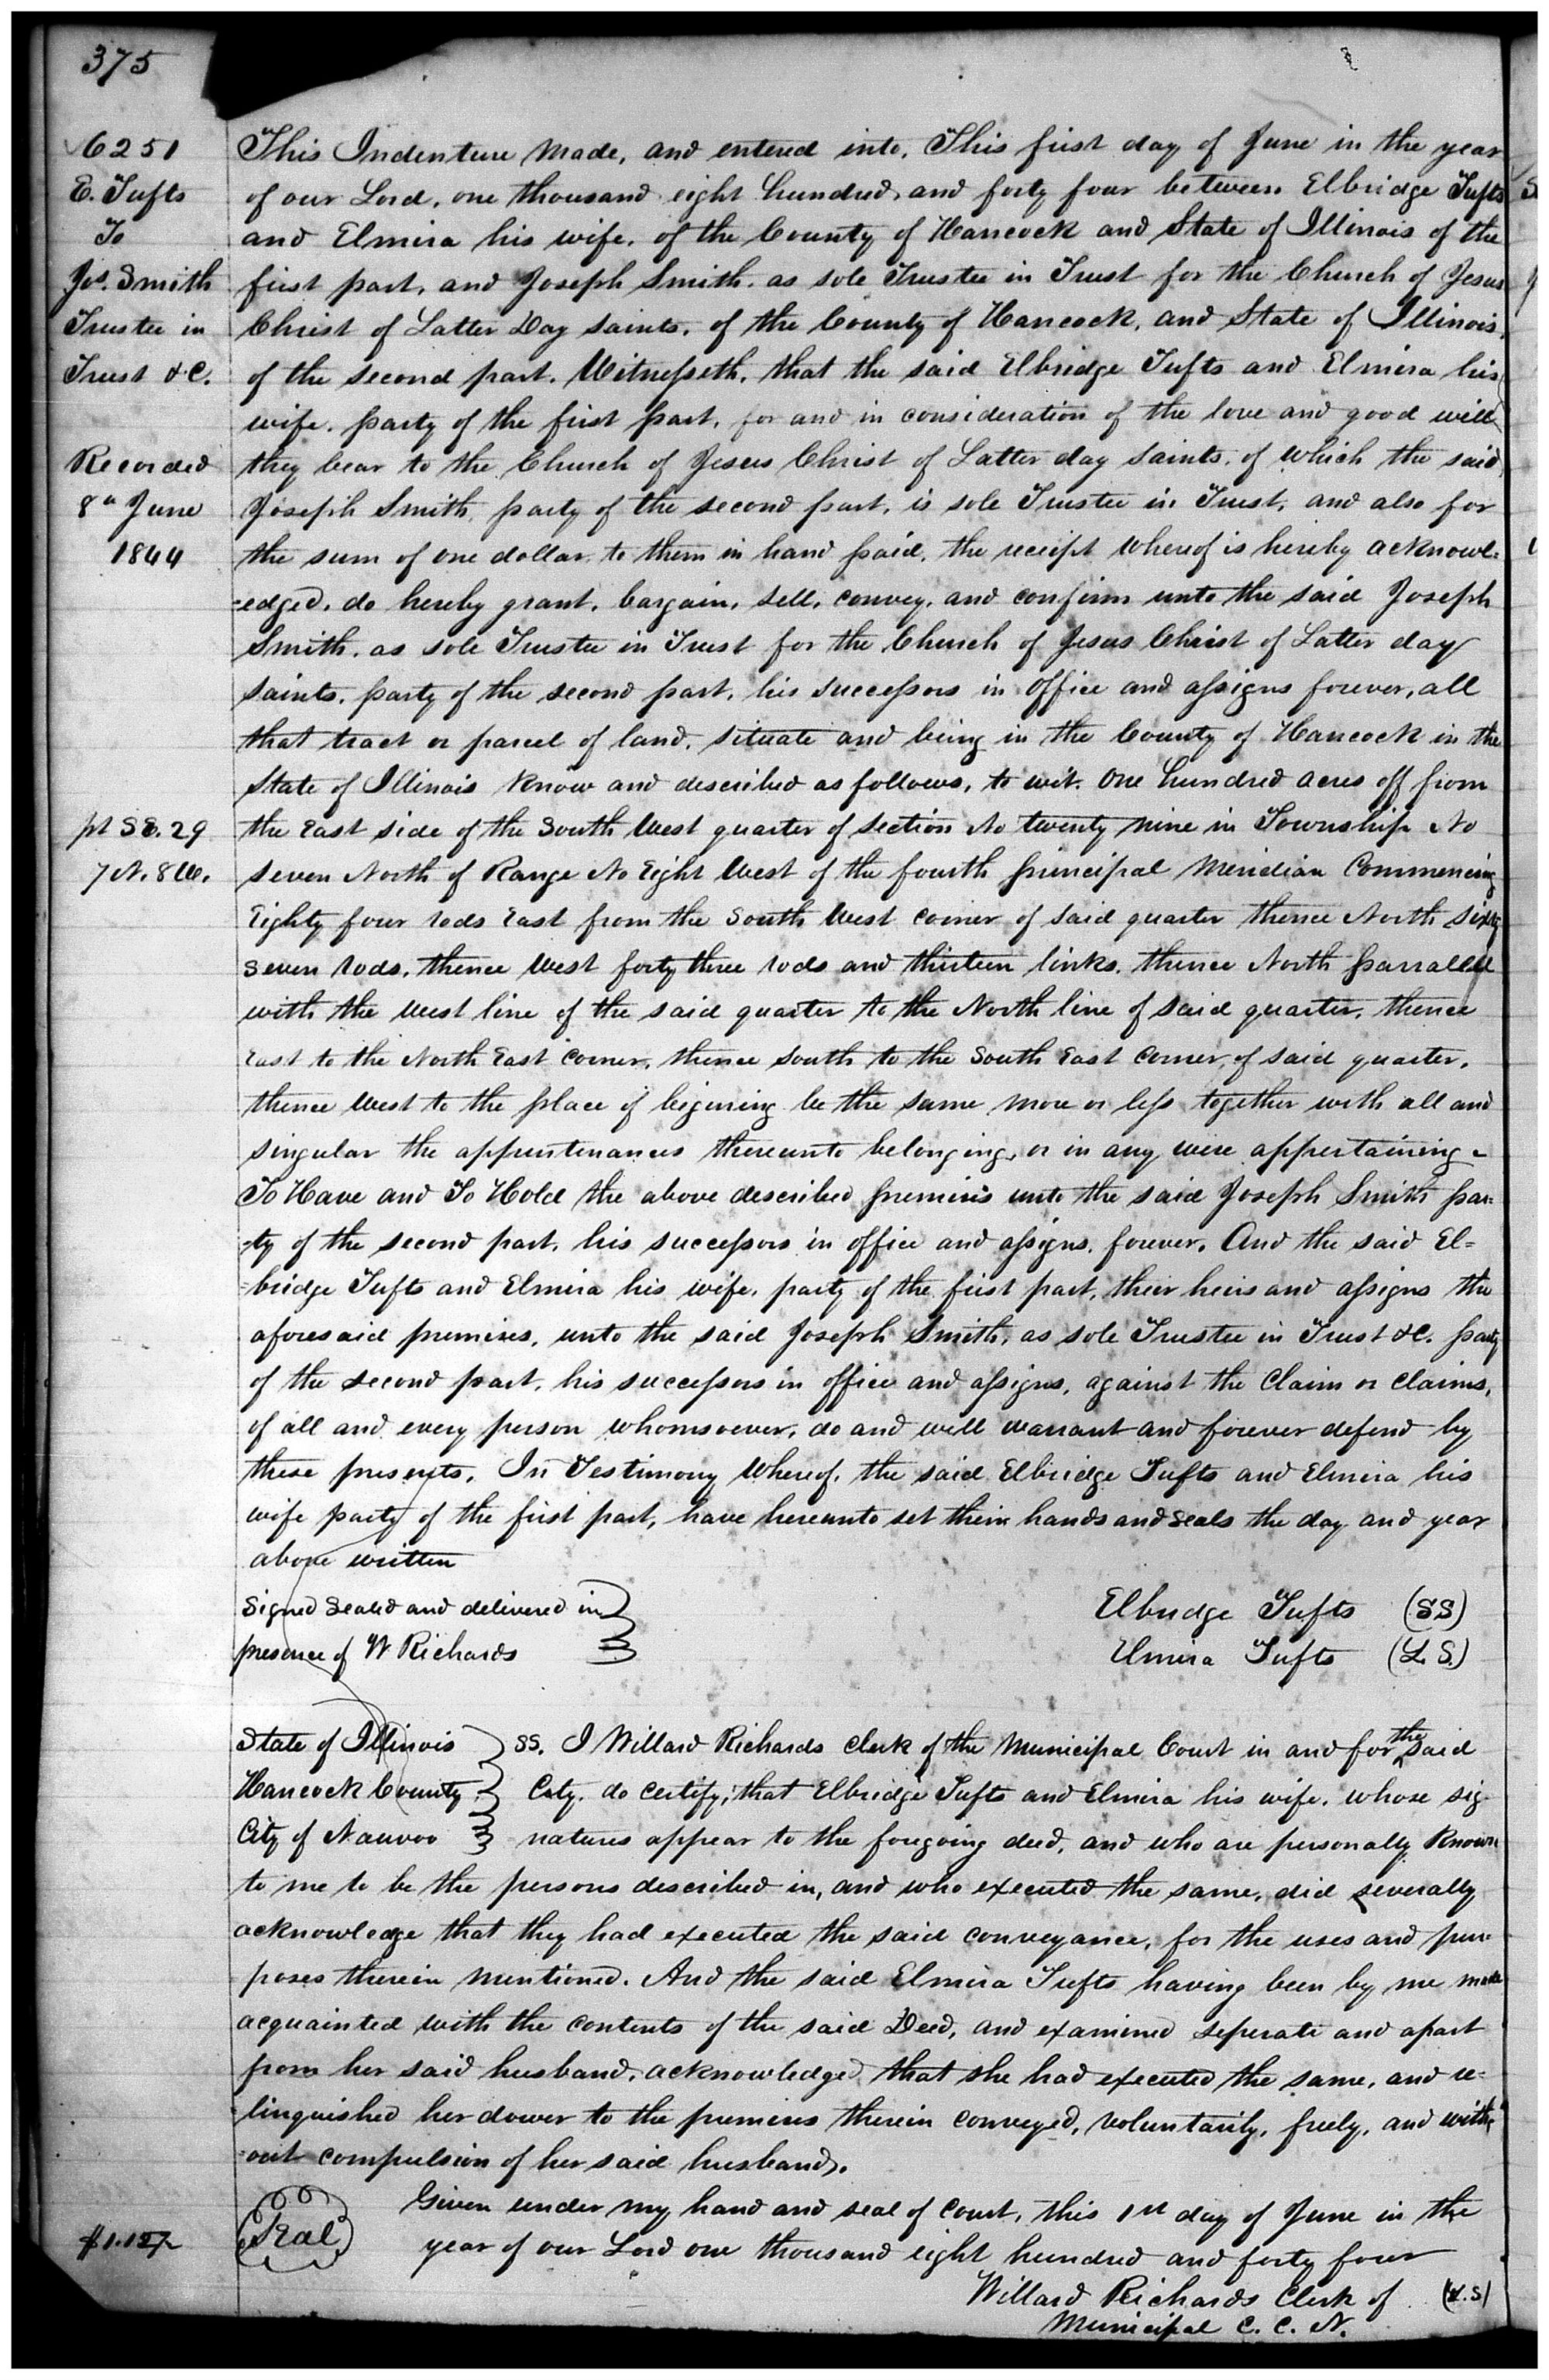 375
6251
E. Tufts
To
Jos. Smith
Trustee in
Trust &C.
Recorded
8th June
1844
pt SE. 29
7 N. 8 W.
This Indenture made, and entered into, This first day of June in the year
of our Lord, one thousand eight hundred, and forty four between Elbridge Tufts
and Elmira his wife, of the County of Hancock and State of Illinois of the
first part, and Joseph Smith, as sole Trustee in Trust for the Church of Jesus
Christ of Latter Day saints, of the County of Hancock, and State of Illinois,
of the second part. Witnesseth, that the said Elbridge Tufts and Elmira his
wife, party of the first part, for and in consideration of the love and good will
they bear to the Church of Jesus Christ of Latter day saints, of which the said
Joseph Smith, party of the second part, is sole Trustee in Trust, and also for
the sum of one dollar, to them in hand paid, the receipt whereof is hereby acknowl=
=edged, do hereby grant, bargain, sell, convey, and confirm unto the said Joseph
Smith, as sole Trustee in Trust for the Church of Jesus Christ of Latter day
saints, party of the second part, his successors in office and assigns forever, all
that tract or parcel of land, situate and being in the County of Hancock in the
State of Illinois know and described as follows, to wit. One hundred acres off from
the East side of the South West quarter of section No twenty nine in Township No
seven North of Range No Eight West of the fourth principal Meridian Commencing
Eighty four rods East from the South West corner of said quarter thence North sixty
seven rods, thence West forty three rods and thirteen links, thence North parralell
with the west line of the said quarter to the North line of said quarter, thence
East to the North East corner, thence south to the South East corner, of said quarter,
thence West to the place of begining be the same more or less together with all and
singular the appurtenances thereunto belonging, or in any wise appertaining -
To Have and To Hold the above described premises unto the said Joseph Smith par=
=ty of the second part, his successors in office and assigns, forever. And the said El=
=bridge Tufts and Elmira his wife, party of the first part, their heirs and assigns the
aforesaid premises, unto the said Joseph Smith, as sole Trustee in Trust &C. party
of the second part, his successors in office and assigns, against the claim or claims,
of all and every person whomsoever, do and will warrant and forever defend by
these presents. In Testimony Whereof, the said Elbridge Tufts and Elmira his
wife party of the first part, have hereunto set their hands and seals the day and year
above written
Signed Sealed and delivered in
presence of W Richards
Elbridge Tufts (SS)
Elmira Tufts (L.S.)
State of Illinois
Hancock County
City of Nauvoo
SS. I Willard Richards Clerk of the Municipal Court in and for the said
City. do certify, that Elbridge Tufts and Elmira his wife, whose sig-
natures appear to the foregoing deed, and who are personally known
to me to be the persons described in, and who executed the same, did severally
acknowledge that they had executed the said conveyance, for the uses and pur-
poses therein mentioned. And the said Elmira Tufts having been by me made
acquainted with the contents of the said Deed, and examined seperate and apart
from her said husband, acknowledged that she had executed the same, and re-
linquished her dower to the premises therein conveyed, voluntarily, freely, and with=
=out compulsion of her said husband.
Seal
Given under my hand and seal of Court, this 1st day of June in the
year of our Lord one thousand eight hundred and forty four
Willard Richards Clerk of (L.S)
Municipal C. C. N.